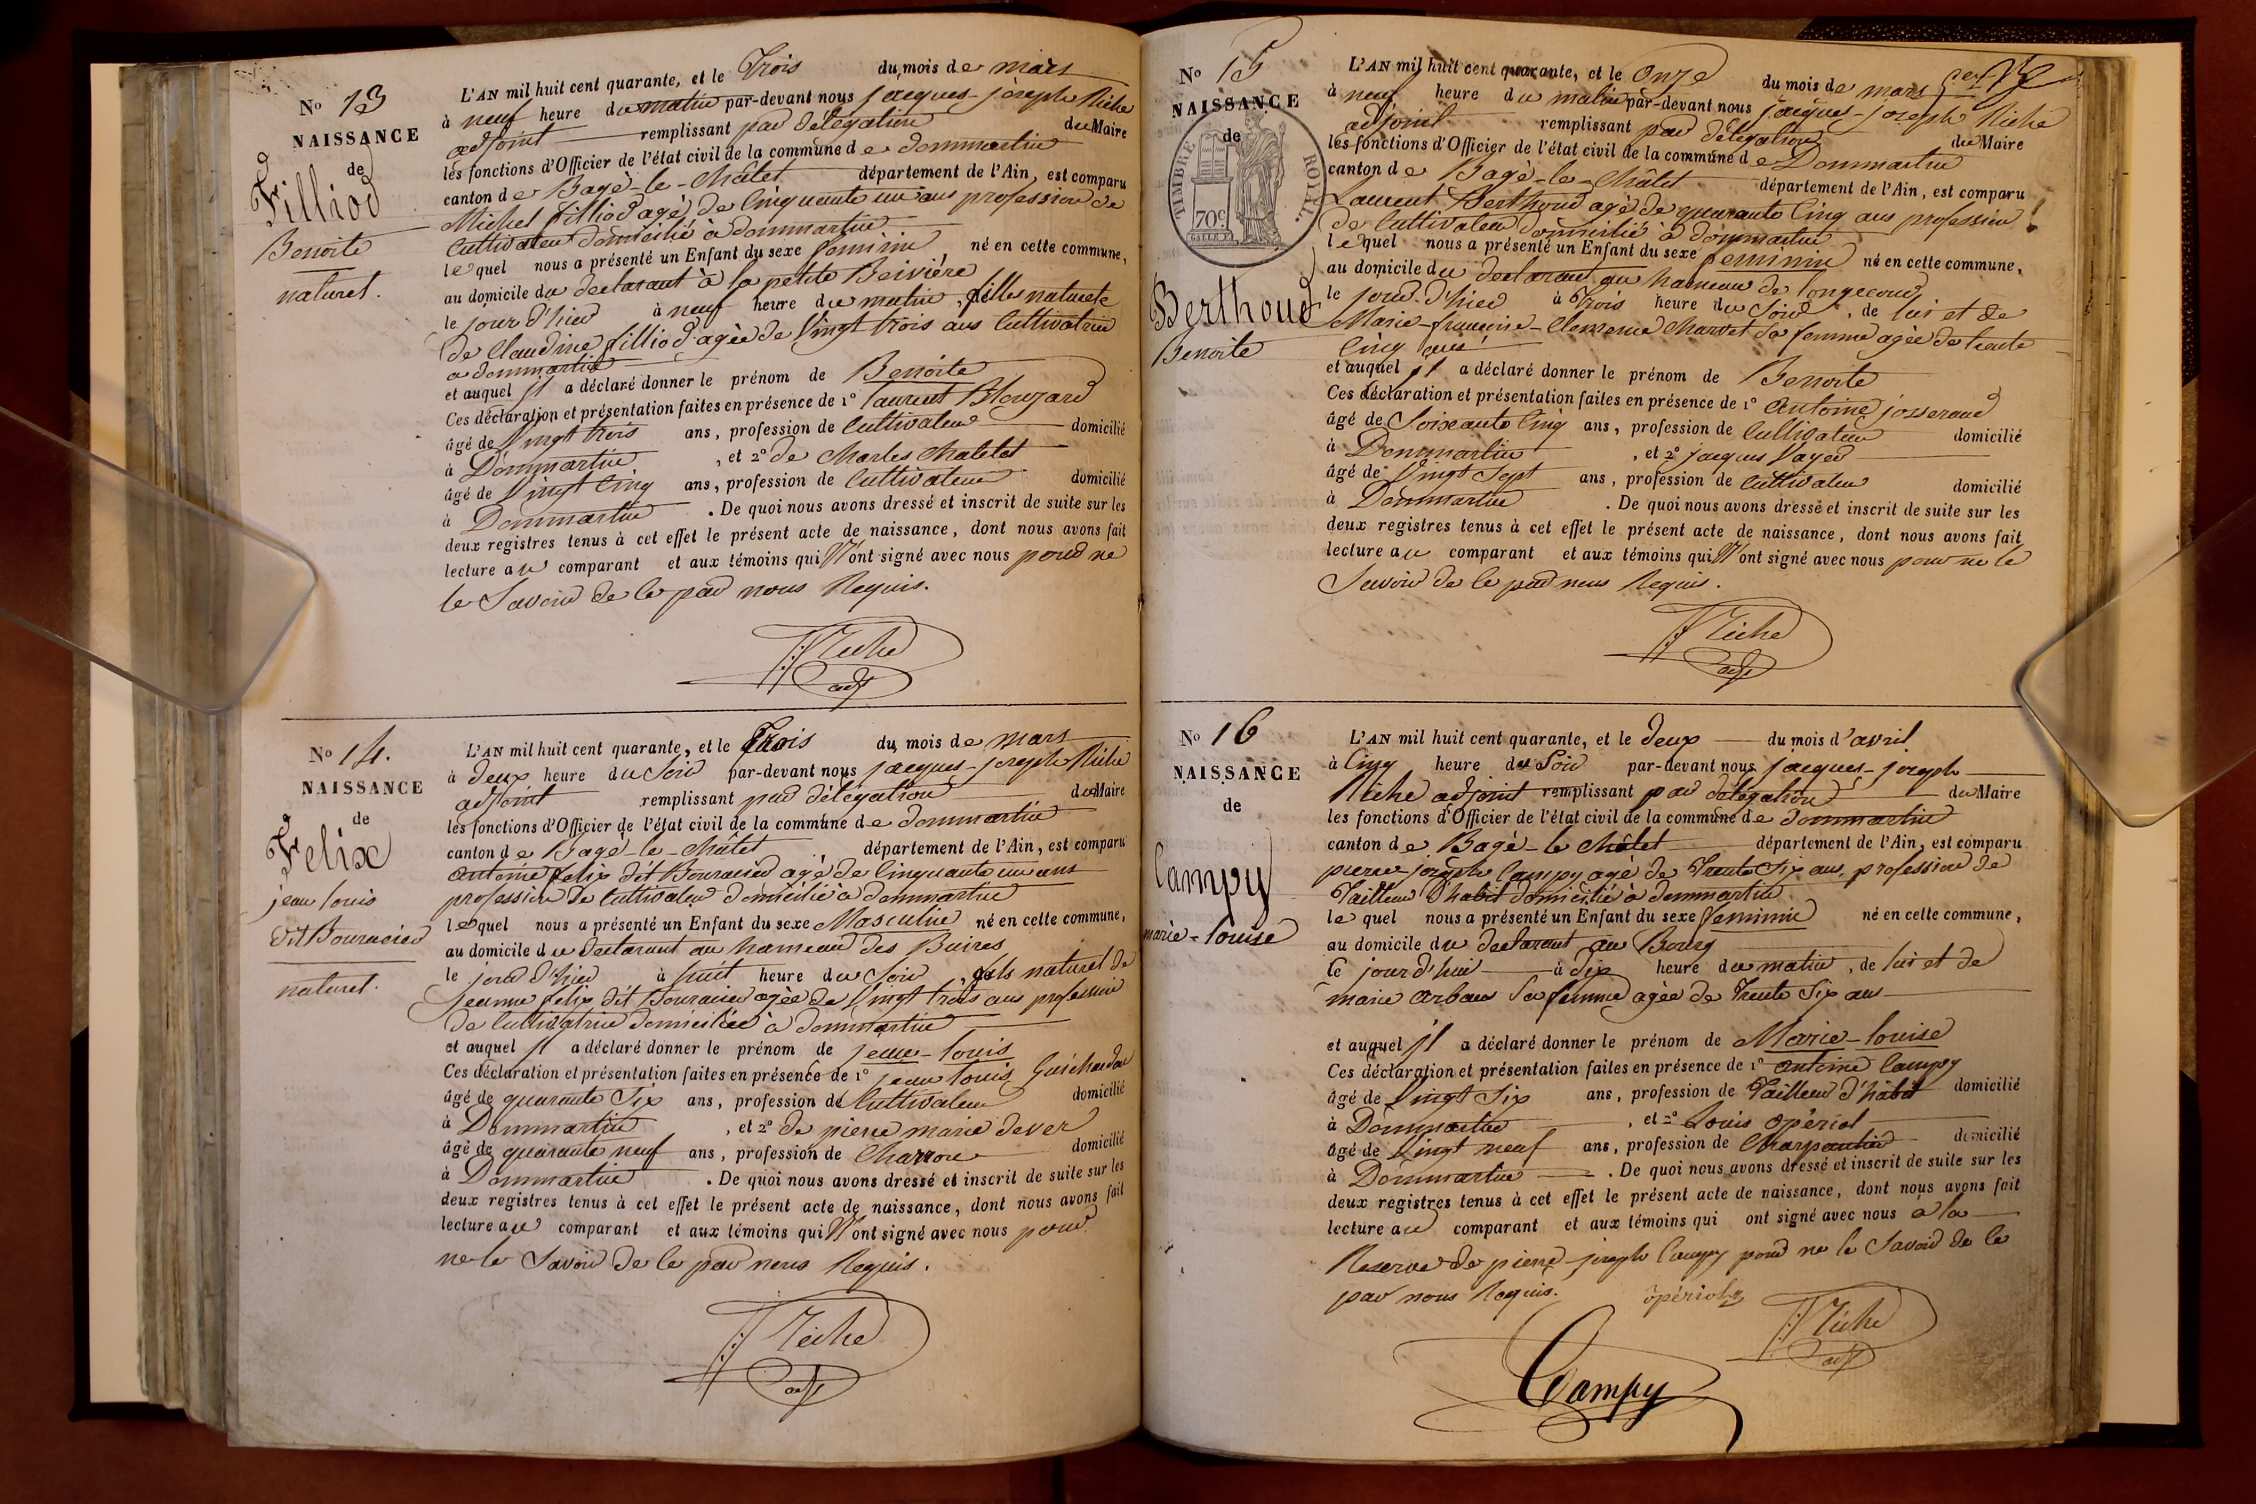 No 13
NAISSANCE
de
Filliod
Benoite
naturel.
L'AN mil huit cent quarante, et le Trois du mois de mars
à neuf heure du matin par-devant nous jacques-joseph Riche
adjoint remplissant par délégation du Maire
les fonctions d'Officier de l'état civil de la commune de dommartin
canton de Bagé-le-Châtel département de l'Ain, est comparu
Michel filliod agé de Cinquante un ans profession de
Cultivateur domicilié à dommartin
lequel nous a présenté un Enfant du sexe feminin né en cette commune,
au domicile du declarant à la petite Beivière
le jour d'hier à neuf heure du matin, fille naturele
de Claudine filliod agée de Vingt trois ans Cultivatrice
a dommartin
et auquel jl a déclaré donner le prénom de Benoite
Ces déclaration et présentation faites en présence de 1° laurent Blouzard
âgé de Vingt trois ans, profession de Cultivateur domicilié
à Dommartin, et 2° de Charles Chatelet
âgé de Vingt Cinq ans, profession de Cultivateur domicilié
à Dommartin. De quoi nous avons dressé et inscrit de suite sur les
deux registres tenus à cet effet le présent acte de naissance, dont nous avons fait
lecture au comparant et aux témoins qui N'ont signé avec nous pour ne
le Savoir de ce par nous Requis.
Riche
adj
No 14.
NAISSANCE
de
Felix
jean louis
dit Bouracier
naturel.
L'AN mil huit cent quarante, et le Trois du mois de mars
à deux heure du Soir par-devant nous jacques-joseph Riche
adjoint remplissant par délégation du Maire
les fonctions d'Officier de l'état civil de la commune de dommartin
canton de Bagé-le-Châtel département de l'Ain, est comparu
antoine felix dit Bouracier agé de Cinquante un ans
profession de Cultivateur domicilié à dommartin
lequel nous a présenté un Enfant du sexe Masculin né en cette commune,
au domicile du declarant au hameau des Buires
le jour d'hier à huit heure du Soir, fils naturel de
jeanne felix dit Bouracier agée de Vingt trois ans profession
de Cultivatrice domiciliée à dommartin
et auquel jl a déclaré donner le prénom de jean-louis
Ces déclaration et présentation faites en présence de 1° jean louis Guichardon
âgé de quarante Six ans, profession de Cultivateur domicilié
à Dommartin, et 2° de pierre marie dever
âgé de quarante neuf ans, profession de Charron domicilié
à Dommartin. De quoi nous avons dressé et inscrit de suite sur les
deux registres tenus à cet effet le présent acte de naissance, dont nous avons fait
lecture au comparant et aux témoins qui N'ont signé avec nous pour
ne le Savoir de ce par nous Requis.
Riche
adj
No 15
NAISSANCE
de
TIMBRE ROYAL.
70c.
Berthoud
Benoite
L'AN mil huit cent quarante, et le Onze du mois de mars
à neuf heure du matin par-devant nous jacques-joseph Riche
adjoint remplissant par délégation du Maire
les fonctions d'Officier de l'état civil de la commune de Dommartin
canton de Bagé-le-Châtel département de l'Ain, est comparu
Laurent Berthoud agé de quarante Cinq ans profession
de Cultivateur domicilié à dommartin
lequel nous a présenté un Enfant du sexe feminin né en cette commune,
au domicile du declarant au hameau de longecour
le jour d'hier à Trois heure du Soir, de lui et de
Marie-françoise-Clemence Charvet Sa femme agée de trente
Cinq ans
et auquel jl a déclaré donner le prénom de Benoite
Ces déclaration et présentation faites en présence de 1° antoine josserand
âgé de Soixante Cinq ans, profession de Cultivateur domicilié
à Dommartin, et 2° jacques Vayer
âgé de Vingt Sept ans, profession de Cultivateur domicilié
à Dommartin. De quoi nous avons dressé et inscrit de suite sur les
deux registres tenus à cet effet le présent acte de naissance, dont nous avons fait
lecture au comparant et aux témoins qui N'ont signé avec nous pour ne le
Savoir de ce par nous Requis.
Riche
adj
No 16
NAISSANCE
de
Campy
marie-louise
L'AN mil huit cent quarante, et le deux du mois d'avril
à Cinq heure du Soir par-devant nous jacques-joseph
Riche adjoint remplissant par délégation du Maire
les fonctions d'Officier de l'état civil de la commune de dommartin
canton de Bagé-le-Châtel département de l'Ain, est comparu
pierre joseph Campy agé de Trente Six ans, profession de
Tailleur d'habit domicilié à dommartin
lequel nous a présenté un Enfant du sexe feminin né en cette commune,
au domicile du declarant au Bourg
le jour d'hui à dix heure du matin, de lui et de
marie arban Sa femme agée de Trente Six ans
et auquel jl a déclaré donner le prénom de Marie-louise
Ces déclaration et présentation faites en présence de 1° antoine Campy
âgé de Vingt Six ans, profession de Tailleur d'habit domicilié
à Dommartin, et 2° Louis opériol
âgé de Vingt neuf ans, profession de Charpentier domicilié
à Dommartin. De quoi nous avons dressé et inscrit de suite sur les
deux registres tenus à cet effet le présent acte de naissance, dont nous avons fait
lecture au comparant et aux témoins qui ont signé avec nous à la
Reserve de pierre-joseph Campy pour ne le Savoir de ce
par nous Requis.
opériol
Riche
adj
Campy